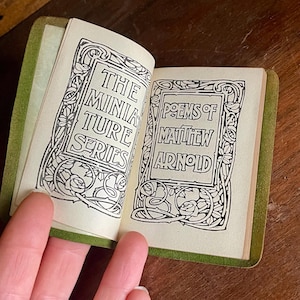 THE
MINIA
TURE
SERIES
POEMS OF
MATTHEW
ARNOLD